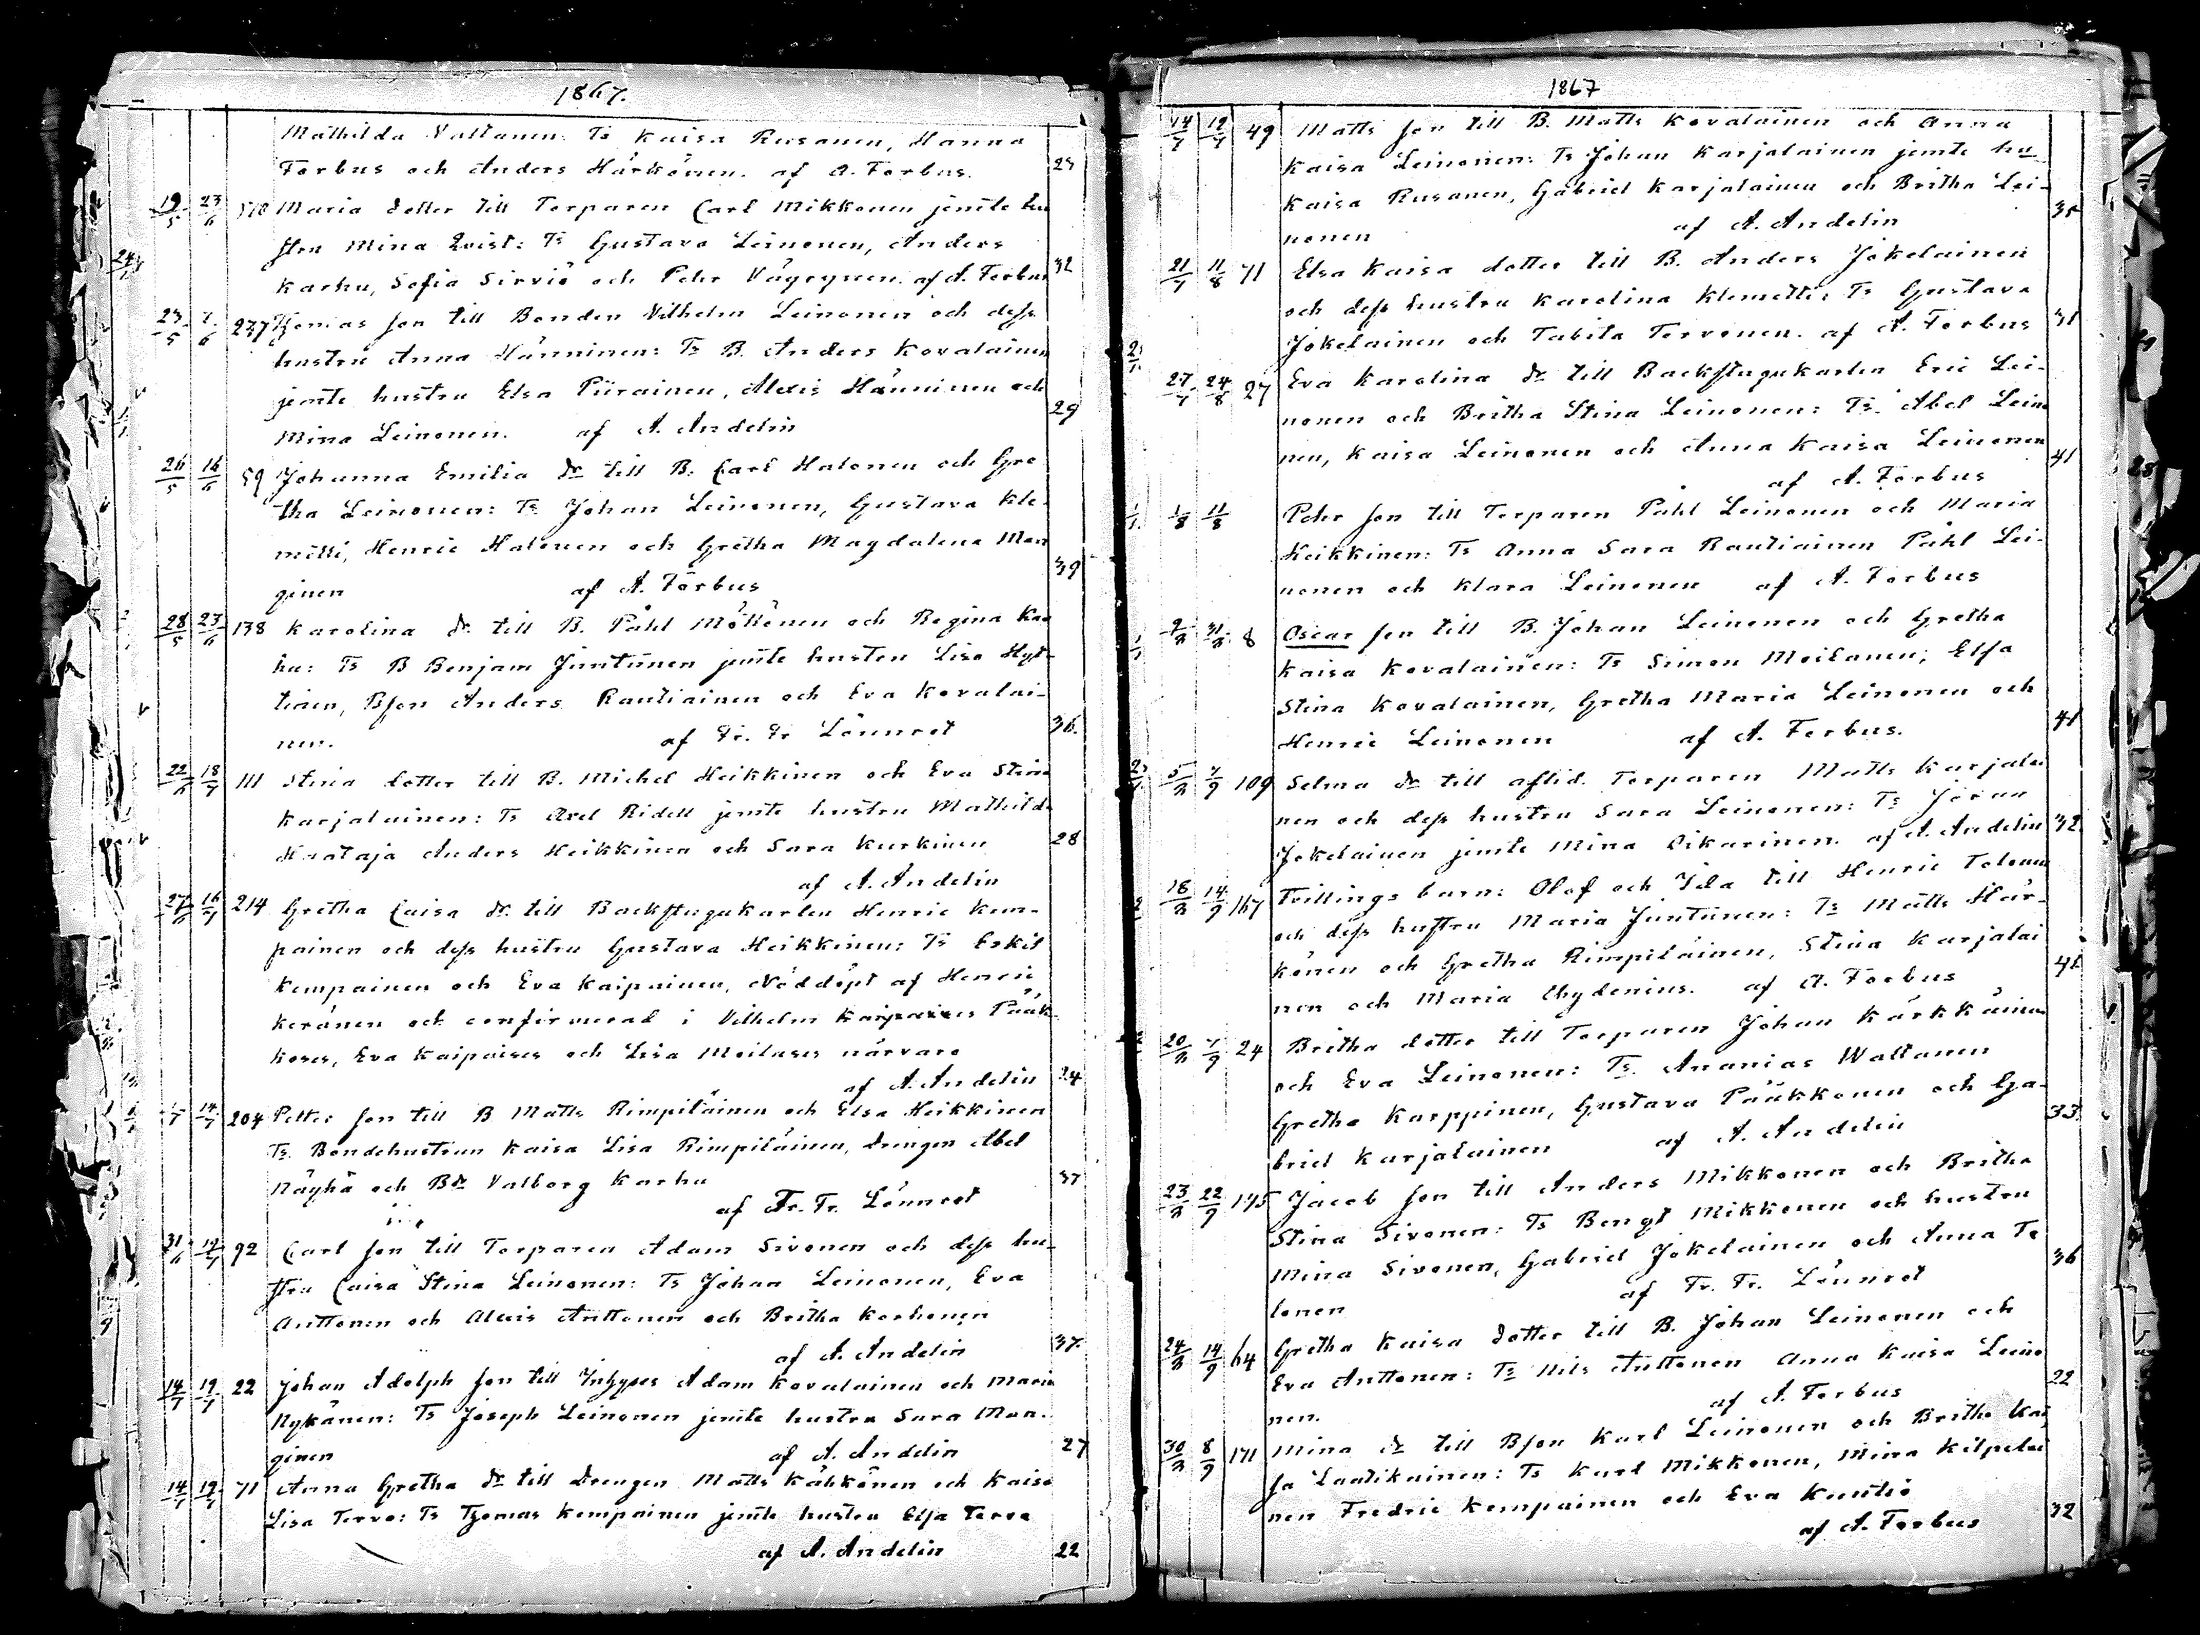 1867.
Mathilda Valtanen: Ts Kaisa Rusanen, Hanna
Forbus och Anders Härkönen. af A. Forbus. 25
19/5 23/6 Maria dotter till Torparen Carl Mikkonen jemte hu
stru Mina Qvist: Ts Gustava Leinonen, Anders
Karhu, Sofia Sirviö och Pehr Väyrynen. af A. Forbus 32
23/5 237 Thomas son till Bonden Vilhelm Leinonen och dess
hustru Anna Hänninen: Ts B. Anders Kovalainen
jemte hustru Elsa Piirainen, Alexis Hänninen och
Mina Leinonen. af A. Andelin 29
26/5 16/6 59 Johanna Emilia dr till B. Carl Halonen och Gre
tha Leinonen: Ts Johan Leinonen, Gustava Kle-
metti, Henric Halonen och Gretha Magdalena Man
ginen af A. Forbus 39
28/5 23/6 138 Karolina dr. till B. Påhl Möttönen och Regina Kar
hu: Ts B Benjam Juntunen jemte hustru Lisa Hyt-
tinen, Bson Anders Rautiainen och Eva Kovalai-
nen. af Fr. Fr Lönnrot 36.
22/6 18/7 111 Stina dotter till B. Michel Heikkinen och Eva Stina
Karjalainen: Ts Axel Ridell jemte hustru Mathilda
Haataja Anders Heikkinen och Sara Kurkinen 28
af A. Andelin
27/6 16/7 214 Gretha Caisa dr. till Backstugukarlen Henric Kem-
painen och dess hustru Gustava Heikkinen: Ts Eskil
Kempainen och Eva Kaipainen, Nöddöpt af Henric
Keränen och confirmerad i Vilhelm Kaipaises Pääk-
köses, Eva Kaipaises och Lisa Moilases närvaro
af A. Andelin 24
14/7 204 Petter son till B Matts Rimpiläinen och Elsa Heikkinen
Ts. Bondehustrun Kaisa Lisa Rimpiläinen, Drengen Abel
Näyhä och Bdr Valborg Karhu 37
af Fr. Fr. Lönnrot
31/6 14/7 92 Carl son till Torparen Adam Sivonen och dess hu-
stru Caisa Stina Leinonen: Ts Johan Leinonen, Eva
Anttonen och Alexis Anttonen och Britha Korhonen
af A. Andelin 37.
14/7 19/7 22 Johan Adolph son till Inhyses Adam Kovalainen och Maria
Nykänen: Ts Joseph Leinonen jemte hustru Sara Man-
ginen af A. Andelin 27
14/7 19/7 71 Anna Gretha dr till Drengen Matts Kähkönen och Kaisa
Lisa Tervo: Ts Thomas Kempainen jemte hustru Elsa Tervo
af A. Andelin 22
1867
14/7 19/7 49 Matts son till B. Matts Kovalainen och Anna
Kaisa Leinonen: Ts Johan Karjalainen jemte hu
Kaisa Rusanen, Gabriel Karjalainen och Britha Lei-
nonen af A. Andelin
21/7 11/8 71 Elsa Kaisa dotter till B. Anders Jokelainen
och dess hustru Karolina Klemetti: Ts Gustava
Jokelainen och Tabita Tervonen. af A. Forbus 31
27/7 24/8 27 Eva Karolina dr till Backstugukarlen Eric Lei-
nonen och Britha Stina Leinonen: Ts. Abel Leino
nen, Kaisa Leinonen och Anna Kaisa Leinonen 41
af A. Forbus
1/8 11/8 Pehr son till Torparen Påhl Leinonen och Maria
Heikkinen: Ts Anna Sara Rautiainen Påhl Lei-
nonen och Klara Leinonen af A. Forbus
31/8 8 Oscar son till B. Johan Leinonen och Gretha
Kaisa Kovalainen: Ts Simon Moilanen, Elsa
Stina Kovalainen, Gretha Maria Leinonen och
Henric Leinonen af A. Forbus. 41
5/8 7/9 109 Selma dr till aflid. Torparen Matts Karjalai
nen och dess hustru Sara Leinonen: Ts Jöran
Jokelainen jemte Mina Oikarinen. af A. Andelin 32
18/8 14/9 167 Tvillings barn: Olof och Ida till Henric Tolonen
och dess hustru Maria Juntunen: Ts Matts Här-
könen och Gretha Rimpiläinen, Stina Karjalai
nen och Maria Chydenius. af A. Forbus
20/8 7/9 24 Britha dotter till Torparen Johan Kärkkäinen
och Eva Leinonen: Ts. Ananias Waltanen
Gretha Karppinen, Gustava Pääkkonen och Ga-
briel Karjalainen af A. Andelin 33.
23/8 22/9 175 Jacob son till Anders Mikkonen och Britha
Stina Sivonen: Ts Bengt Mikkonen och hustru
Mina Sivonen, Gabriel Jokelainen och Anna To
lonen af Fr. Fr. Lönnrot 36
24/8 14/9 64 Gretha Kaisa dotter till B. Johan Leinonen och
Eva Anttonen: Ts Nils Anttonen Anna Kaisa Leino
nen. af A. Forbus 22
30/8 8/9 171 Mina dr till Bson Karl Leinonen och Britha Kai
sa Laatikainen: Ts Karl Mikkonen, Mina Kilpelai
nen Fredric Kempainen och Eva Kuntio
af A. Forbus 32